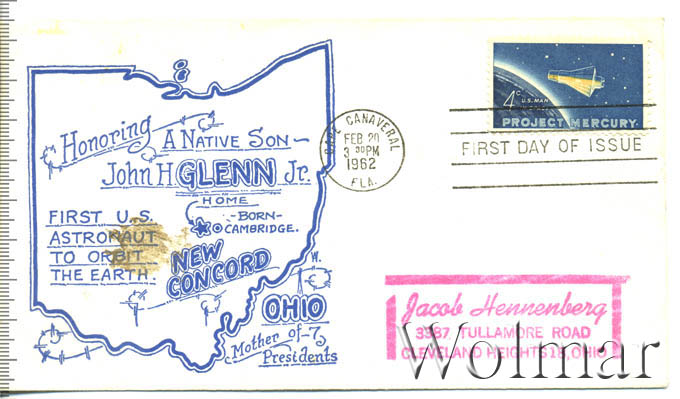 Honoring
A NATIVE SON —
John H. GLENN Jr.
HOME
-BORN-
CAMBRIDGE.
FIRST U.S.
ASTRONAUT
TO ORBIT
THE EARTH.
NEW
CONCORD
W.
OHIO
Mother of -7-
Presidents
CAPE CANAVERAL
FEB 20
3 30PM
1962
FLA.
4c
U.S. MAN
PROJECT MERCURY
FIRST DAY OF ISSUE
Jacob Hennenberg
3387 TULLAMORE ROAD
CLEVELAND HEIGHTS 18, OHIO
Wolmar